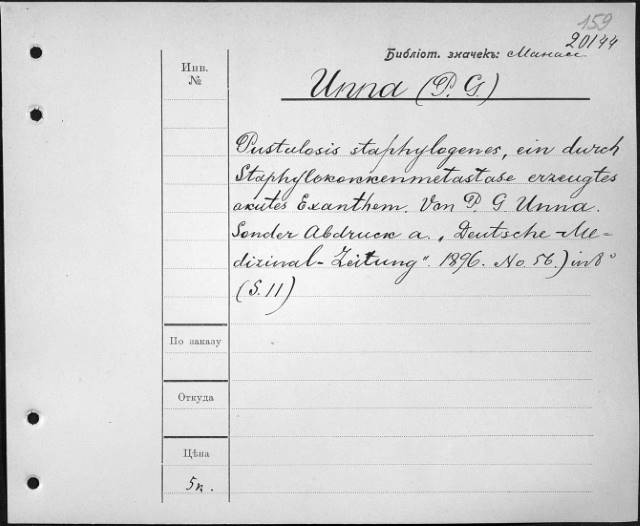 159
20144
Библіот. значекъ: Манасс
Инв.
№
Unna (P. G.)
Pustulosis staphylogenes, ein durch
Staphylokokkenmetastase erzeugtes
akutes Exanthem. Von P. G. Unna.
Sonder Abdruck a. „Deutsche Me-
dizinal-Zeitung". 1896. No. 56.) in 8°
(S. 11)
По заказу
Откуда
Цѣна
5к.